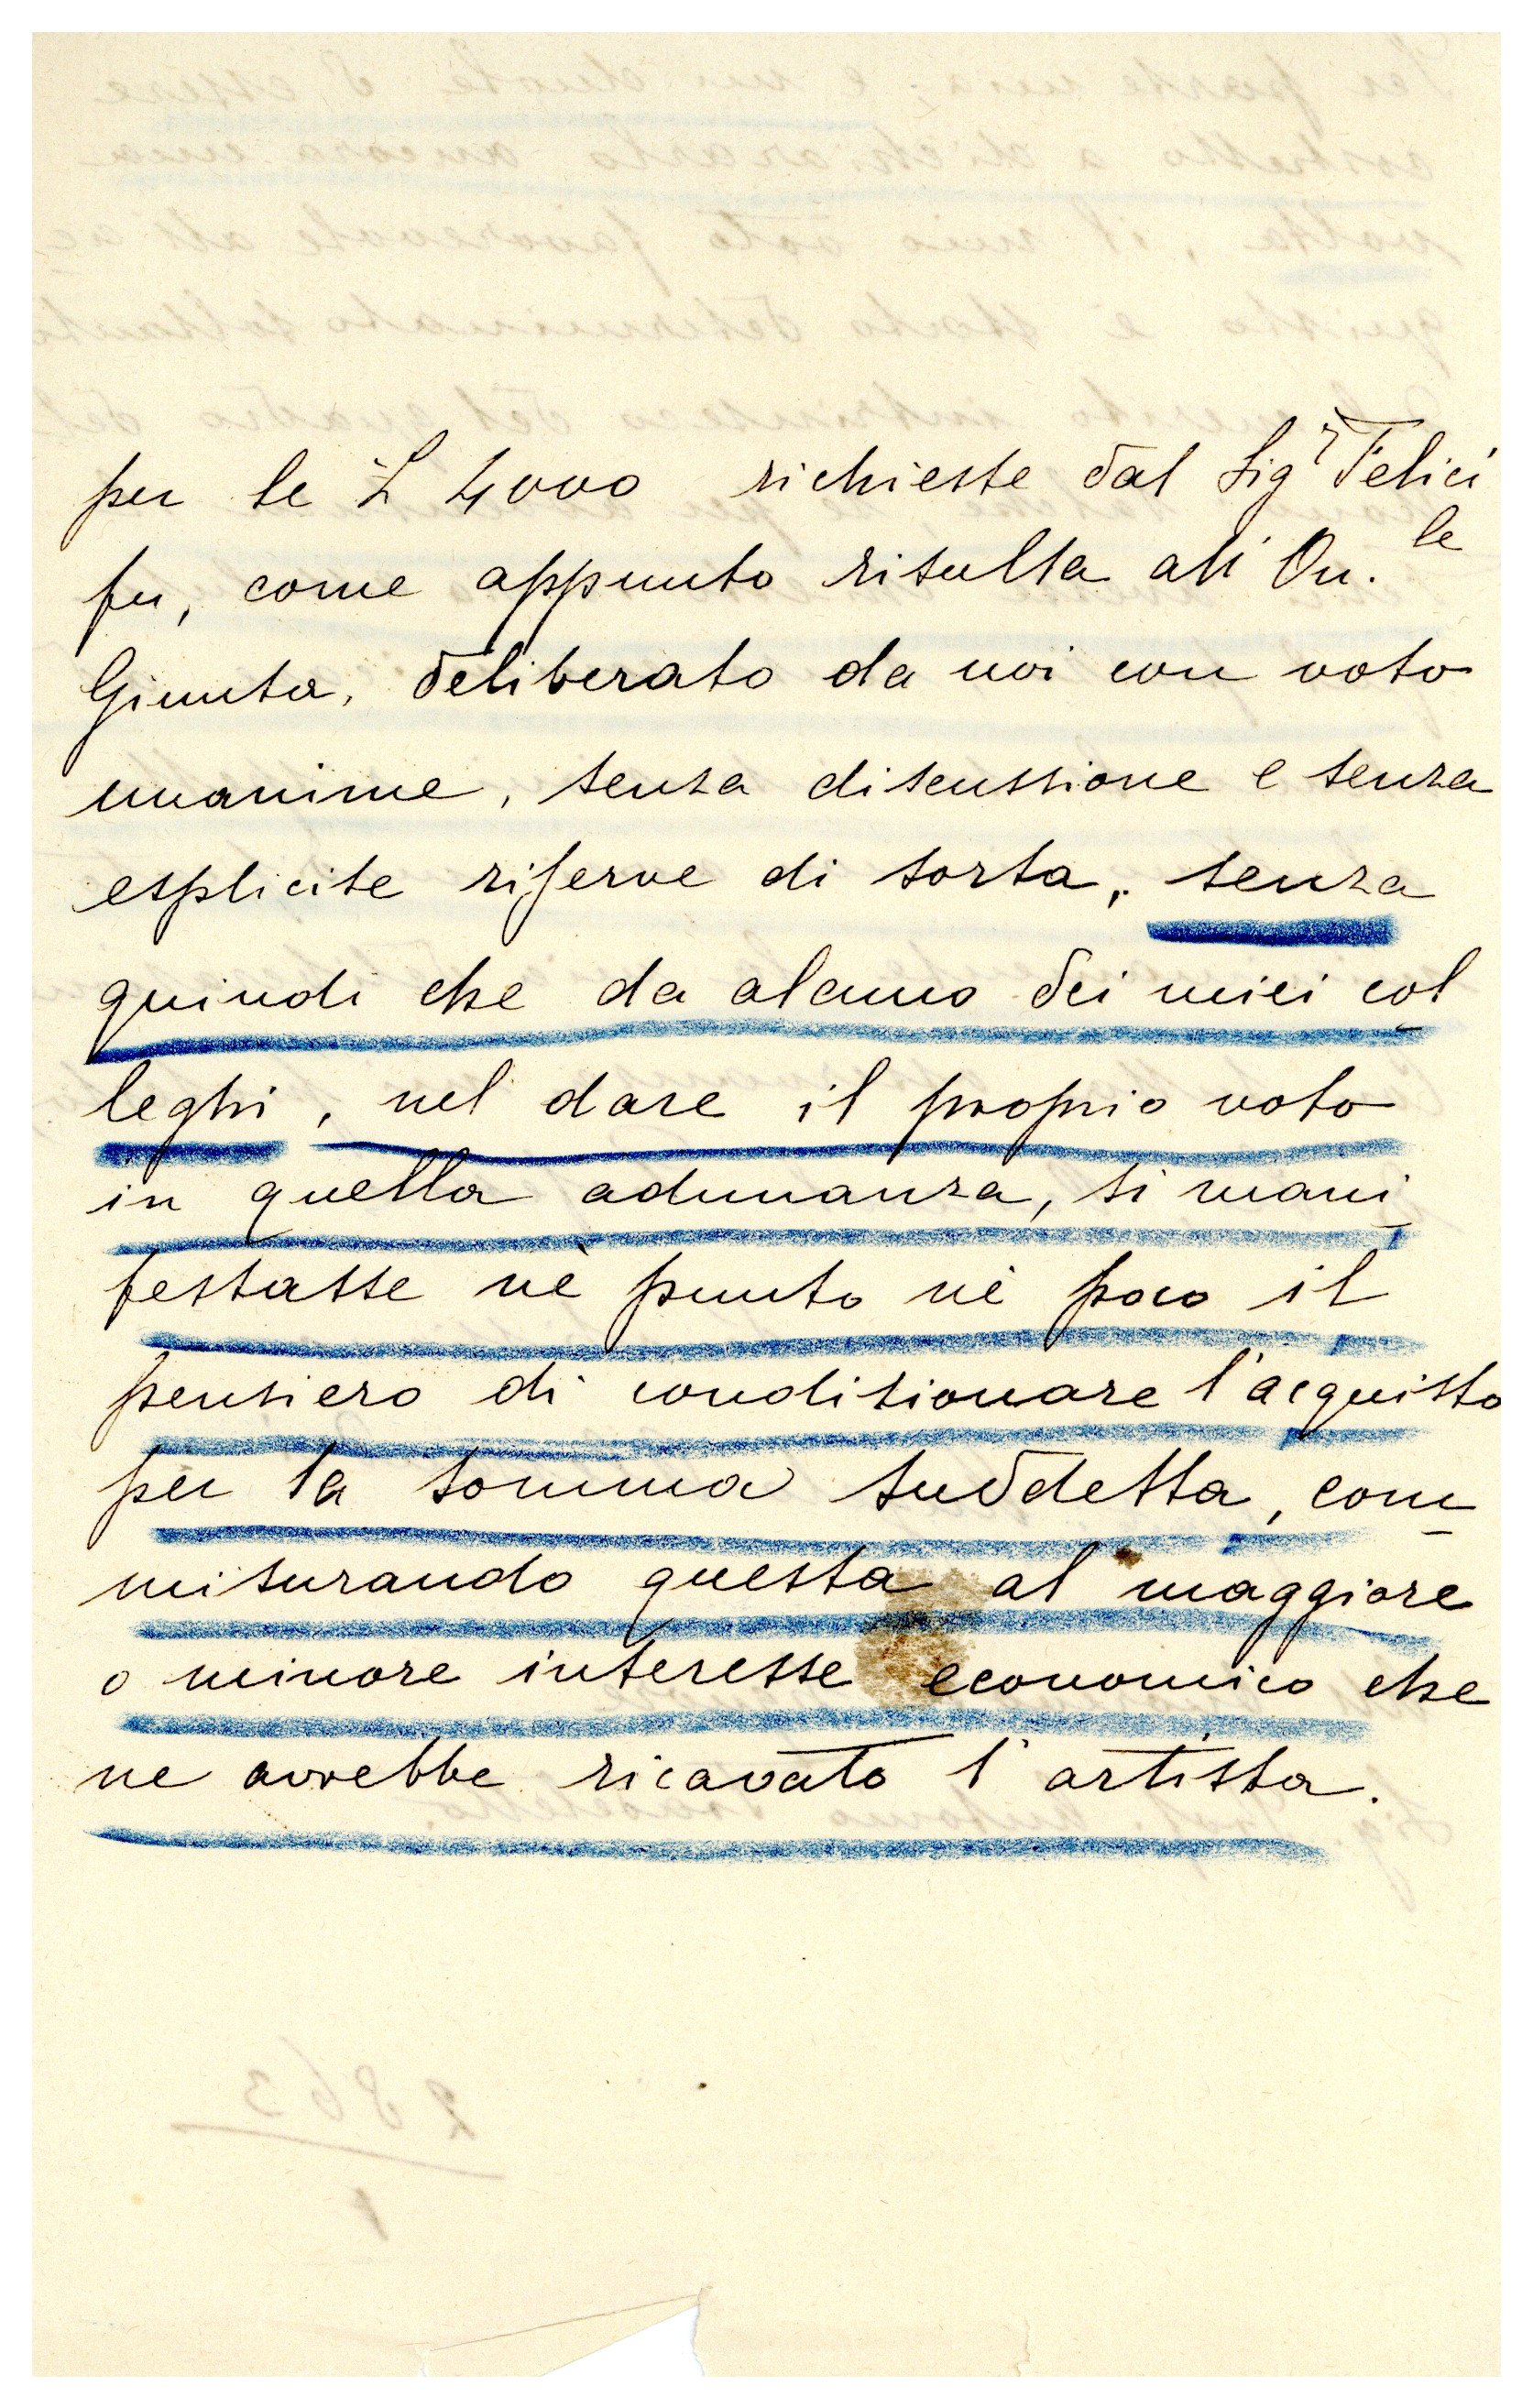 per le £ 4000 richieste dal Sigr Felici
fu, come appunto risulta all'On.le
Giunta, deliberato da noi con voto
unanime, senza discussione e senza
esplicite riserve di sorta, senza
quindi che da alcuno dei miei col
leghi, nel dare il proprio voto
in quella adunanza, si mani
festasse nè punto nè poco il
pensiero di condizionare l'acquisto
per la somma suddetta, com
misurando questa al maggiore
o minore interesse economico che
ne avrebbe ricavato l'artista.
2863
1